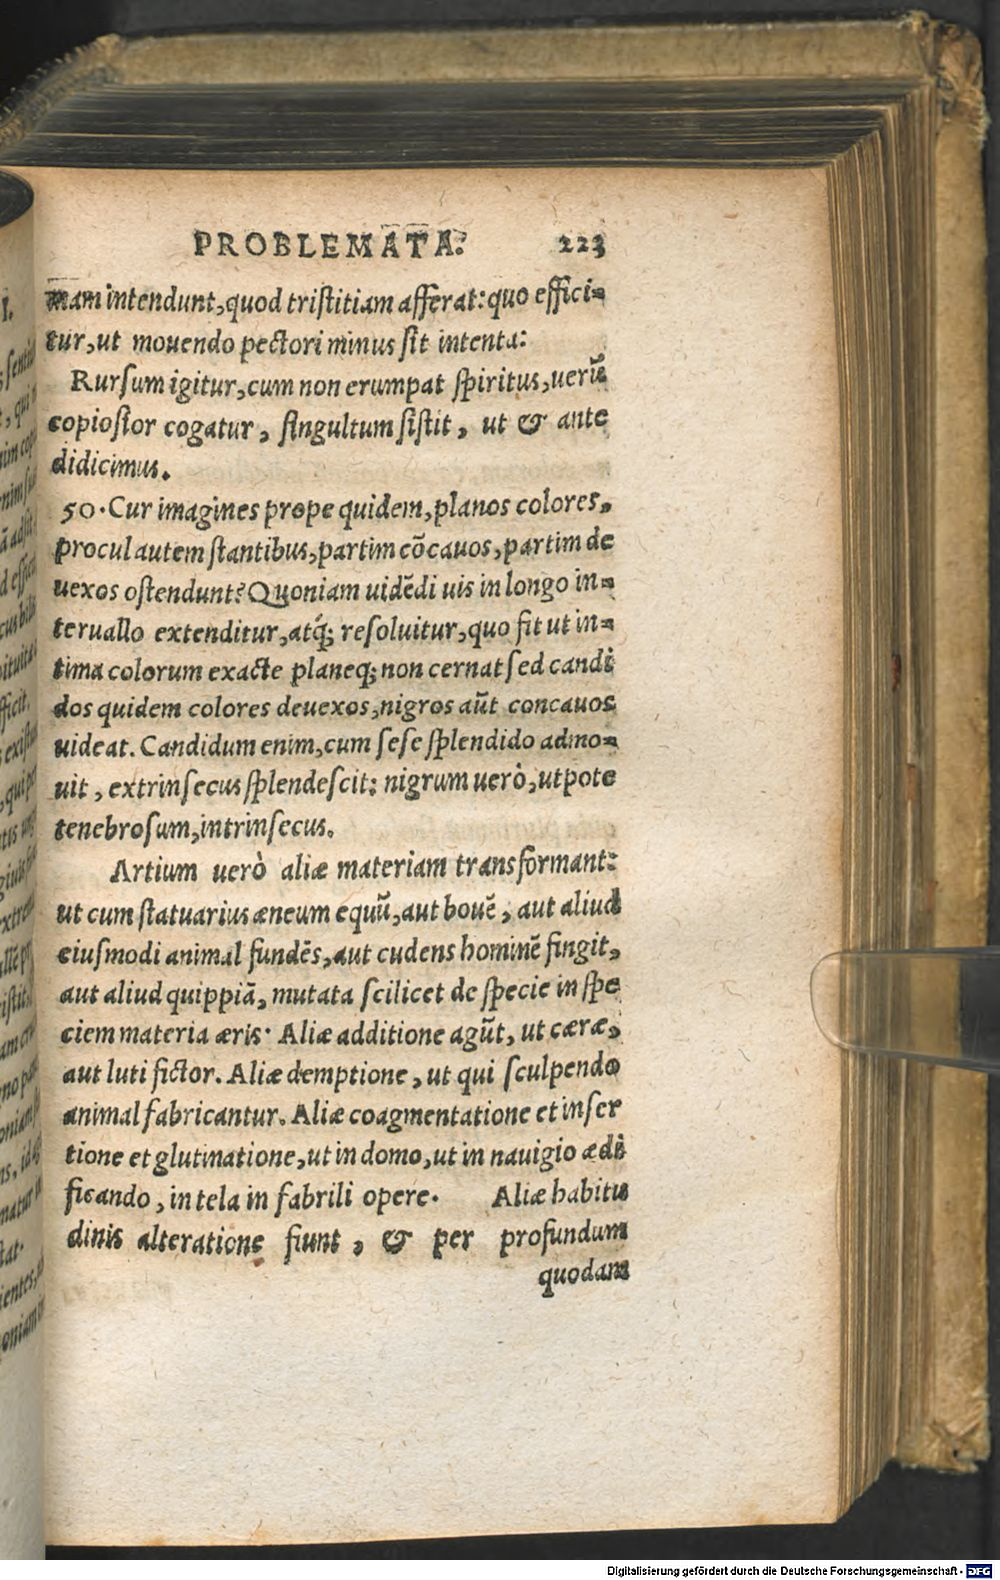 PROBLEMATA. 223
mam intendunt, quod tristitiam afferat: quo effici-
tur, ut mouendo pectori minus sit intenta:
Rursum igitur, cum non erumpat spiritus, uerũ
copiosior cogatur, singultum sistit, ut & ante
didicimus.
50. Cur imagines prope quidem, planos colores,
procul autem stantibus, partim cõcauos, partim de
uexos ostendunt? Quoniam uidẽdi uis in longo in-
teruallo extenditur, atq́; resoluitur, quo fit ut in-
tima colorum exacte planeq; non cernat sed candi
dos quidem colores deuexos, nigros aũt concauos
uideat. Candidum enim, cum sese splendido admo-
uit, extrinsecus splendescit: nigrum uerò, utpote
tenebrosum, intrinsecus.
Artium uerò aliæ materiam transformant:
ut cum statuarius æneum equũ, aut bouẽ, aut aliud
eiusmodi animal fundẽs, aut cudens hominẽ fingit,
aut aliud quippiã, mutata scilicet de specie in spe
ciem materia æris. Aliæ additione agũt, ut cæræ,
aut luti fictor. Aliæ demptione, ut qui sculpendo
animal fabricantur. Aliæ coagmentatione et inser
tione et glutinatione, ut in domo, ut in nauigio ædi
ficando, in tela in fabrili opere. Aliæ habitu
dinis alteratione fiunt, & per profundum
quodam
I.
Digitalisierung gefördert durch die Deutsche Forschungsgemeinschaft - DFG